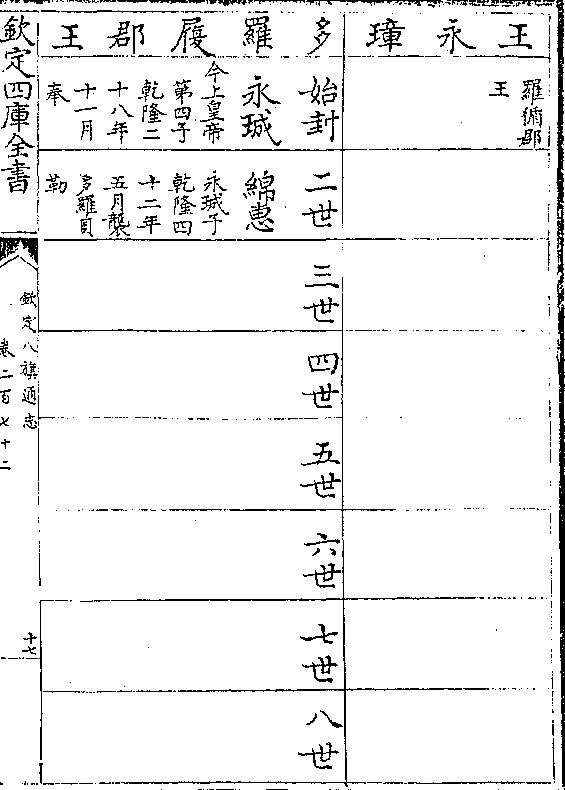 王永璋
羅循郡
王
多羅履郡王
始封
永珹
今上皇帝
第四子
乾隆二
十八年
十一月
奉
二世
綿惠
永珹子
乾隆四
十二年
五月襲
多羅貝
勒
三世
四世
五世
六世
七世
八世
欽定四庫全書
欽定八旗通志
卷二百七十二
十七